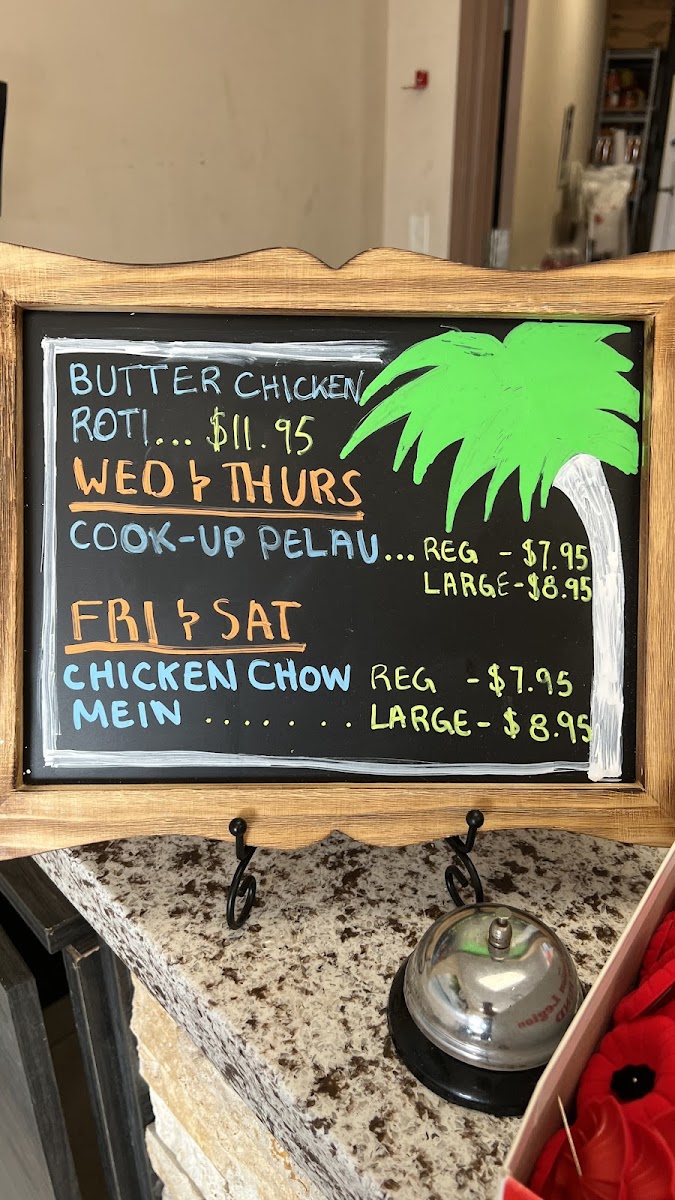 BUTTER CHICKEN
ROTI... $11.95
WED & THURS
COOK-UP PELAU... REG - $7.95
LARGE - $8.95
FRI & SAT
CHICKEN CHOW REG - $7.95
MEIN ....... LARGE - $8.95
Legion